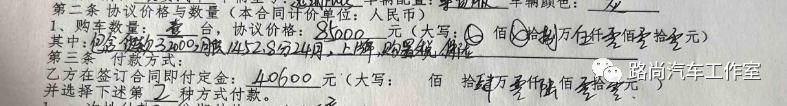 车辆配置： 车辆颜色：
第二条 协议价格与数量（本合同计价单位：人民币）
1、购车数量：壹台，协议价格：85000元（大写： 佰 拾捌万伍仟零佰零拾零元）
其中：包含 贷款32000,月供1452.8分24月,上牌,购置税,保险
第三条 付款方式：
乙方在签订合同即付定金：40600元（大写： 佰 拾肆万零仟陆佰零拾零元）
并选择下述第2种方式付款。
路尚汽车工作室